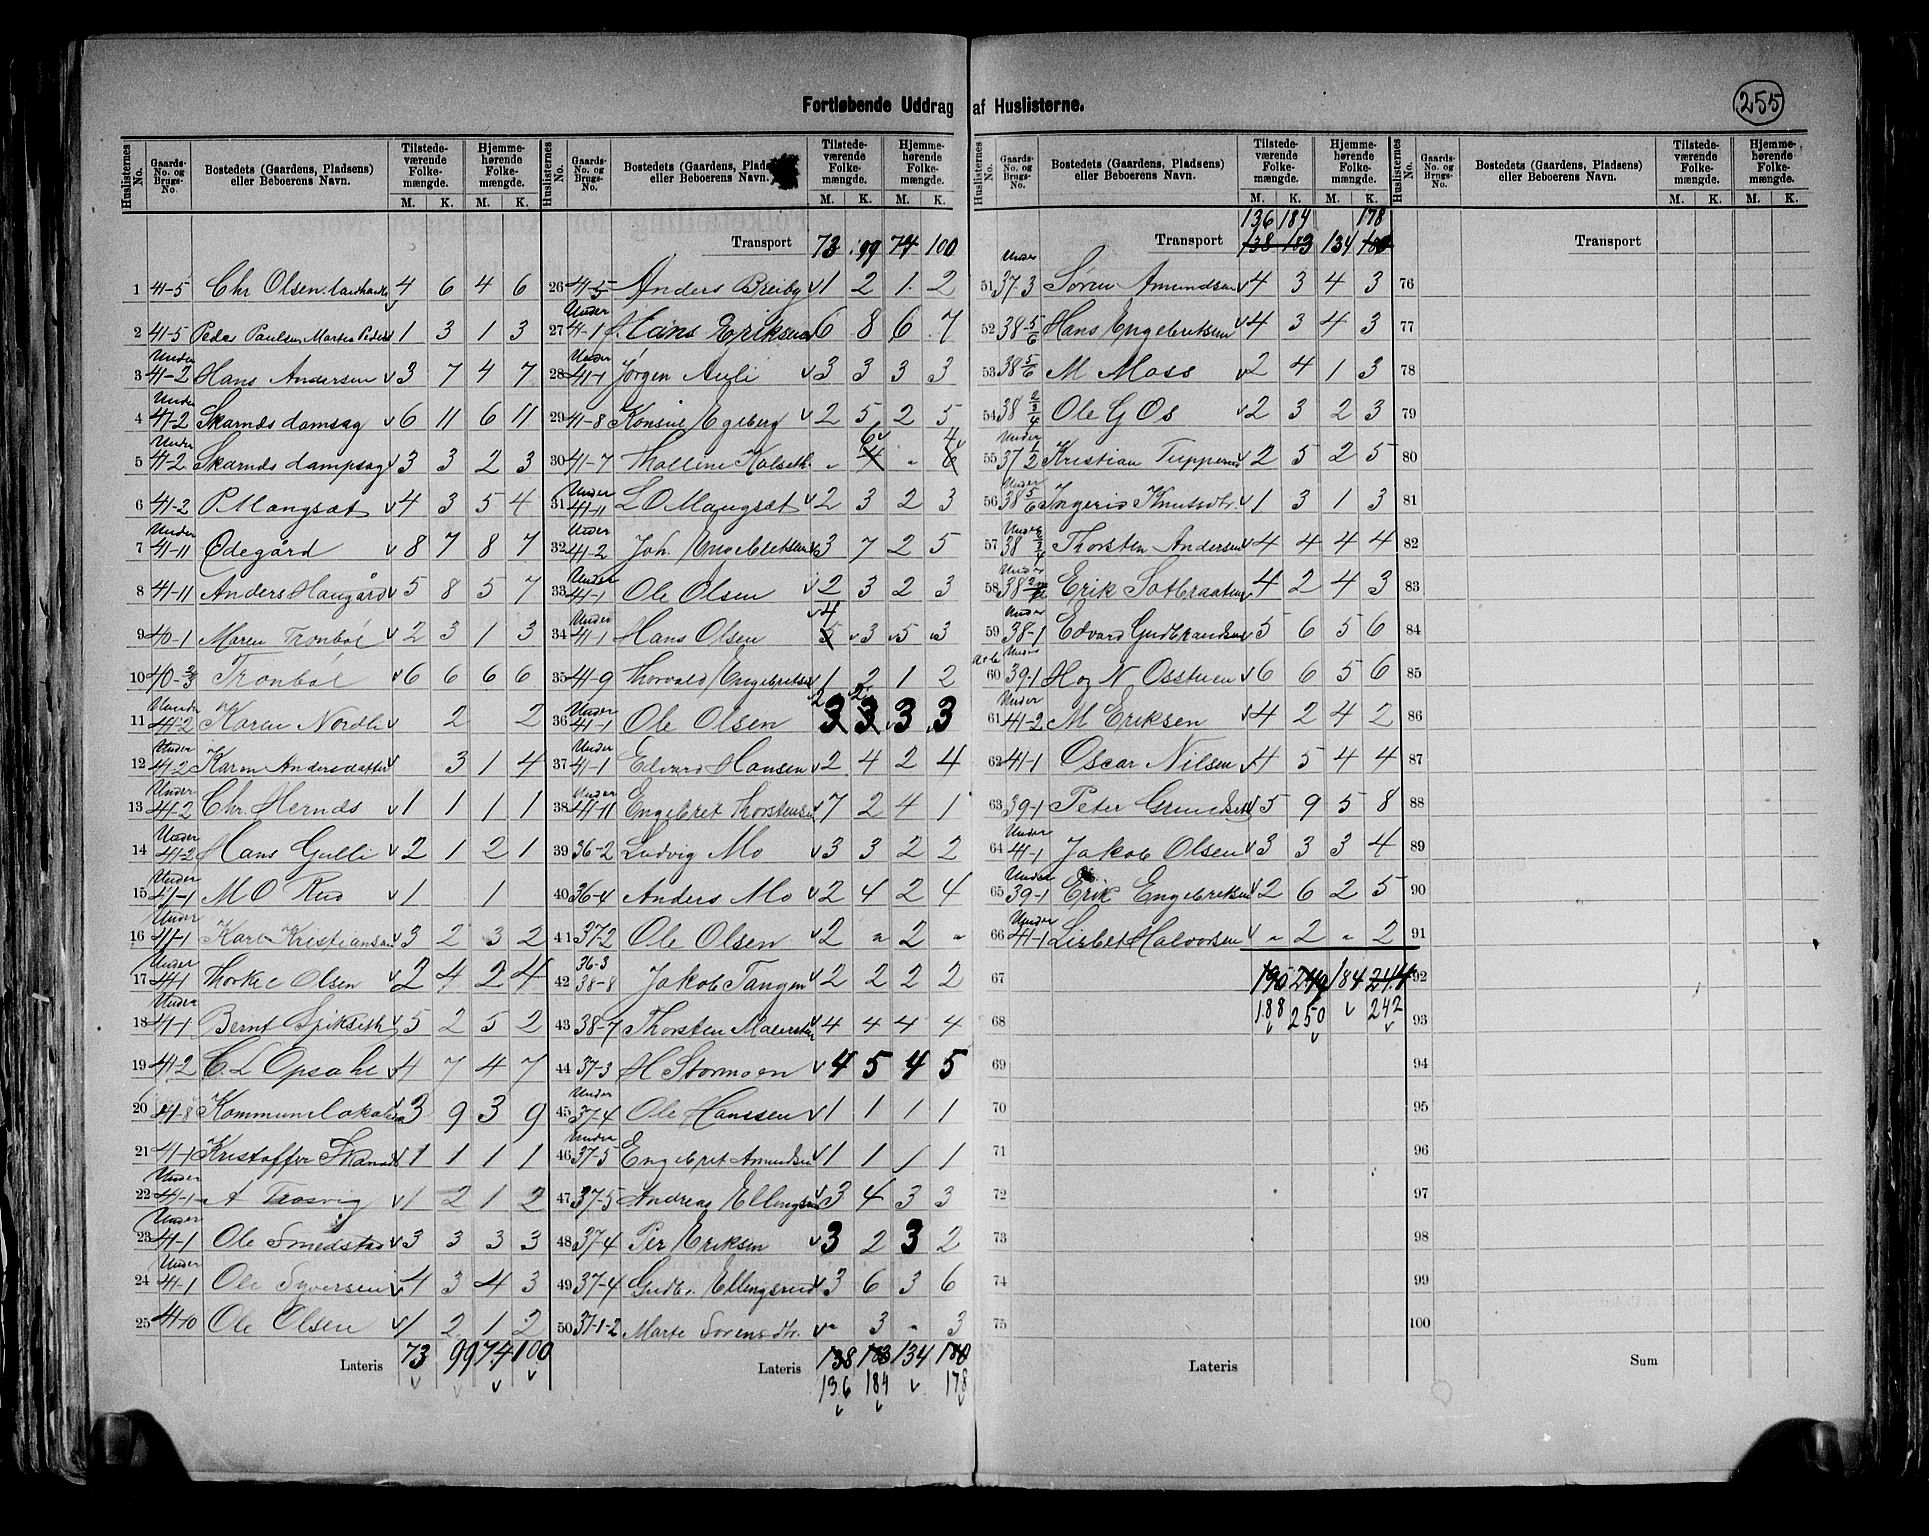 Fortløbende Uddrag af Huslisterne.
255
Huslisternes No. | Gaards-No. og Brugs-No. | Bostedets (Gaardens, Pladsens) eller Beboerens Navn. | Tilstedeværende Folkemængde. M. K. | Hjemmehørende Folkemængde. M. K.
1 41-5 Chr Olsen 4 6 4 6
2 41-5 Peder Paulsen, Martea Peders 1 3 1 3
3 Under 41-2 Hans Andersen 3 7 4 7
4 Under 41-2 Skarnds damsag 6 11 6 11
5 Under 41-2 Skarnds dampsag 3 3 2 3
6 41-2 P Mangsæt 4 3 5 4
7 Under 41-11 Ødegård 8 7 8 7
8 41-11 Anders Haugård 5 8 5 7
9 40-1 Maren Tronböl 2 3 1 3
10 40-2/3 Tronböl 6 6 6 6
11 Under 41-2 Karen Nordli 2 2
12 Under 41-2 Karen Andersdatter 3 1 4
13 Under 41-2 Chr. Hernds 1 1 1 1
14 Under 41-2 Hans Gulli 2 1 2 1
15 Under 41-1 M O Rud 1 1
16 Under 41-1 Karl Kristiansen 3 2 3 2
17 Under 41-1 Thorkel Olsen 2 4 2 4
18 Under 41-1 Bernt Spikseth 5 2 5 2
19 41-2 C. L Opsahl 4 7 4 7
20 41-8 Kommunelokalet 3 9 3 9
21 41-1 Kristoffer Skarnd 1 1 1 1
22 Under 41-1 A Trosvig 1 2 1 2
23 Under 41-1 Ole Smedstad 3 3 3 3
24 Under 41-1 Ole Syversen 4 3 4 3
25 41-10 Ole Olsen 1 2 1 2
Lateris 73 99 74 100
Transport 73 99 74 100
26 41-5 Anders Breiby 1 2 1 2
27 Under 41-1 Hans Eriksen 6 8 6 7
28 Under 41-1 Jørgen Auli 3 3 3 3
29 41-8 Konsul Egeberg 2 5 2 5
6 4
30 41-7 Thalline Kolseth " 4 " 6
31 Under 41-11 L O Maugsæt 2 3 2 3
32 Under 41-2 Joh. Engebretsen 3 7 2 5
33 Under 41-1 Ole Olsen 2 3 2 3
4
34 Under 41-1 Hans Olsen 5 3 5 3
35 41-9 Thorvald Engebretsen 1 2 1 2
2 2
36 Under 41-1 Ole Olsen 3 3 3 3
37 Under 41-1 Edvard Hansen 2 4 2 4
38 Under 41-11 Engebret Thorstensen 7 2 4 1
39 36-2 Ludvig Mo 3 3 2 2
40 36-4 Anders Mo 2 4 2 4
41 37-2 Ole Olsen 2 " 2 "
42 36-3 38-8 Jakob Tangen 2 2 2 2
43 38-7 Thorsten 4 4 4 4
44 37-3 H Stormoen 4 5 4 5
45 Under 37-4 Ole Hanssen 1 1 1 1
46 Under 37-5 Engebret Amundsen 1 1 1 1
47 37-5 Andreas Ellingsen 3 4 3 3
48 37-4 Per Eriksen 3 2 3 2
49 37-4 Gudbr. Ellingsrud 3 6 3 6
50 37-1-2 Marte Sorensdtr. " 3 " 3
Lateris 138 183 134 180
136 184 178
136 184 178
Transport 138 183 134 180
51 Under 37-3 Søren Amundsen 4 3 4 3
52 38-5/6 Hans Engebretsen 4 3 4 3
53 38 5/6 M Moss 2 4 1 3
54 38 2/3/4 Ole G Os 2 3 2 3
55 Under 37 1/2 Kristian Tupperud 2 5 2 5
56 Under 38 5/6 Ingerid Knutsdtr. 1 3 1 3
57 Under 38 2/3/4 Thorsten Andersen 4 4 4 4
58 Under 38 Erik Sotbraaten 4 2 4 3
59 Under 38-1 Edvard Gudbrandsen 5 6 5 6
60 Under 39-1 H og N Osstuen 6 6 5 6
61 Under 41-2 M Eriksen 4 2 4 2
62 41-1 Oscar Nilsen 4 5 4 4
63 39-1 Peter Grundset 5 9 5 8
64 Under 41-1 Jakob Olsen 3 3 3 4
65 Under 39-1 Erik Engebriksen 2 6 2 5
66 Under 41-1 Lisbet Halvorsen " 2 " 2
67 190 249 184 244
68 188 250 242
69
70
71
72
73
74
75
Lateris
Transport
76
77
78
79
80
81
82
83
84
85
86
87
88
89
90
91
92
93
94
95
96
97
98
99
100
Sum